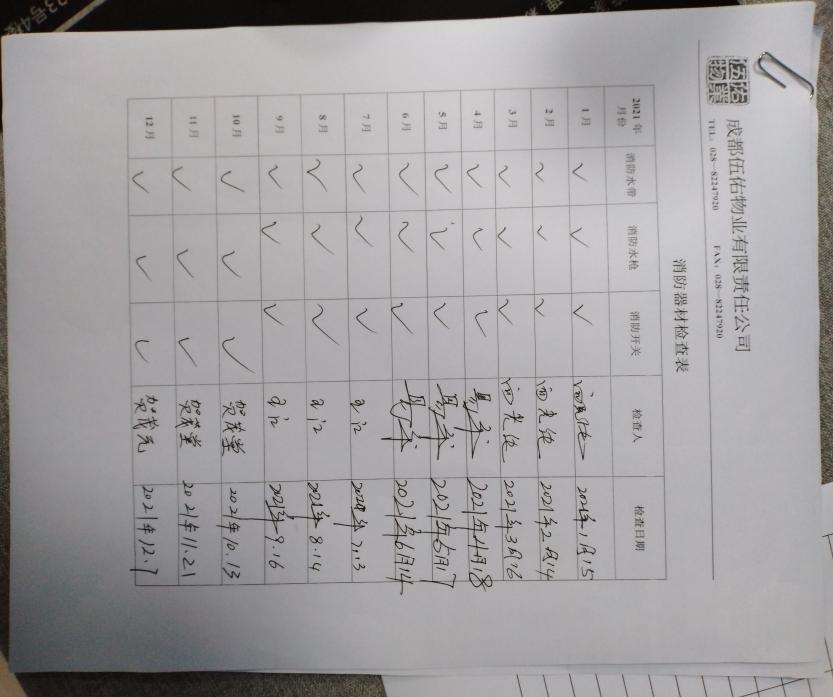 伍佑
物業
成都伍佑物业有限责任公司
TEL: 028—82247920 FAX: 028—82247920
消防器材检查表
2021年月份 消防水带 消防水枪 消防开关 检查人 检查日期
1月 ✓ ✓ ✓ 2021年1月15
2月 ✓ ✓ ✓ 2021年2月14
3月 ✓ ✓ ✓ 2021年3月16
4月 ✓ ✓ ✓ 2021年4月18
5月 ✓ ✓ ✓ 2021年5月17
6月 ✓ ✓ ✓ 2021年6月14
7月 ✓ ✓ ✓ 2021年7.13
8月 ✓ ✓ ✓ 2021年8.14
9月 ✓ ✓ ✓ 2021年9.16
10月 ✓ ✓ ✓ 贺茂堂 2021年10.13
11月 ✓ ✓ ✓ 贺茂堂 2021年11.21
12月 ✓ ✓ ✓ 2021年12.7